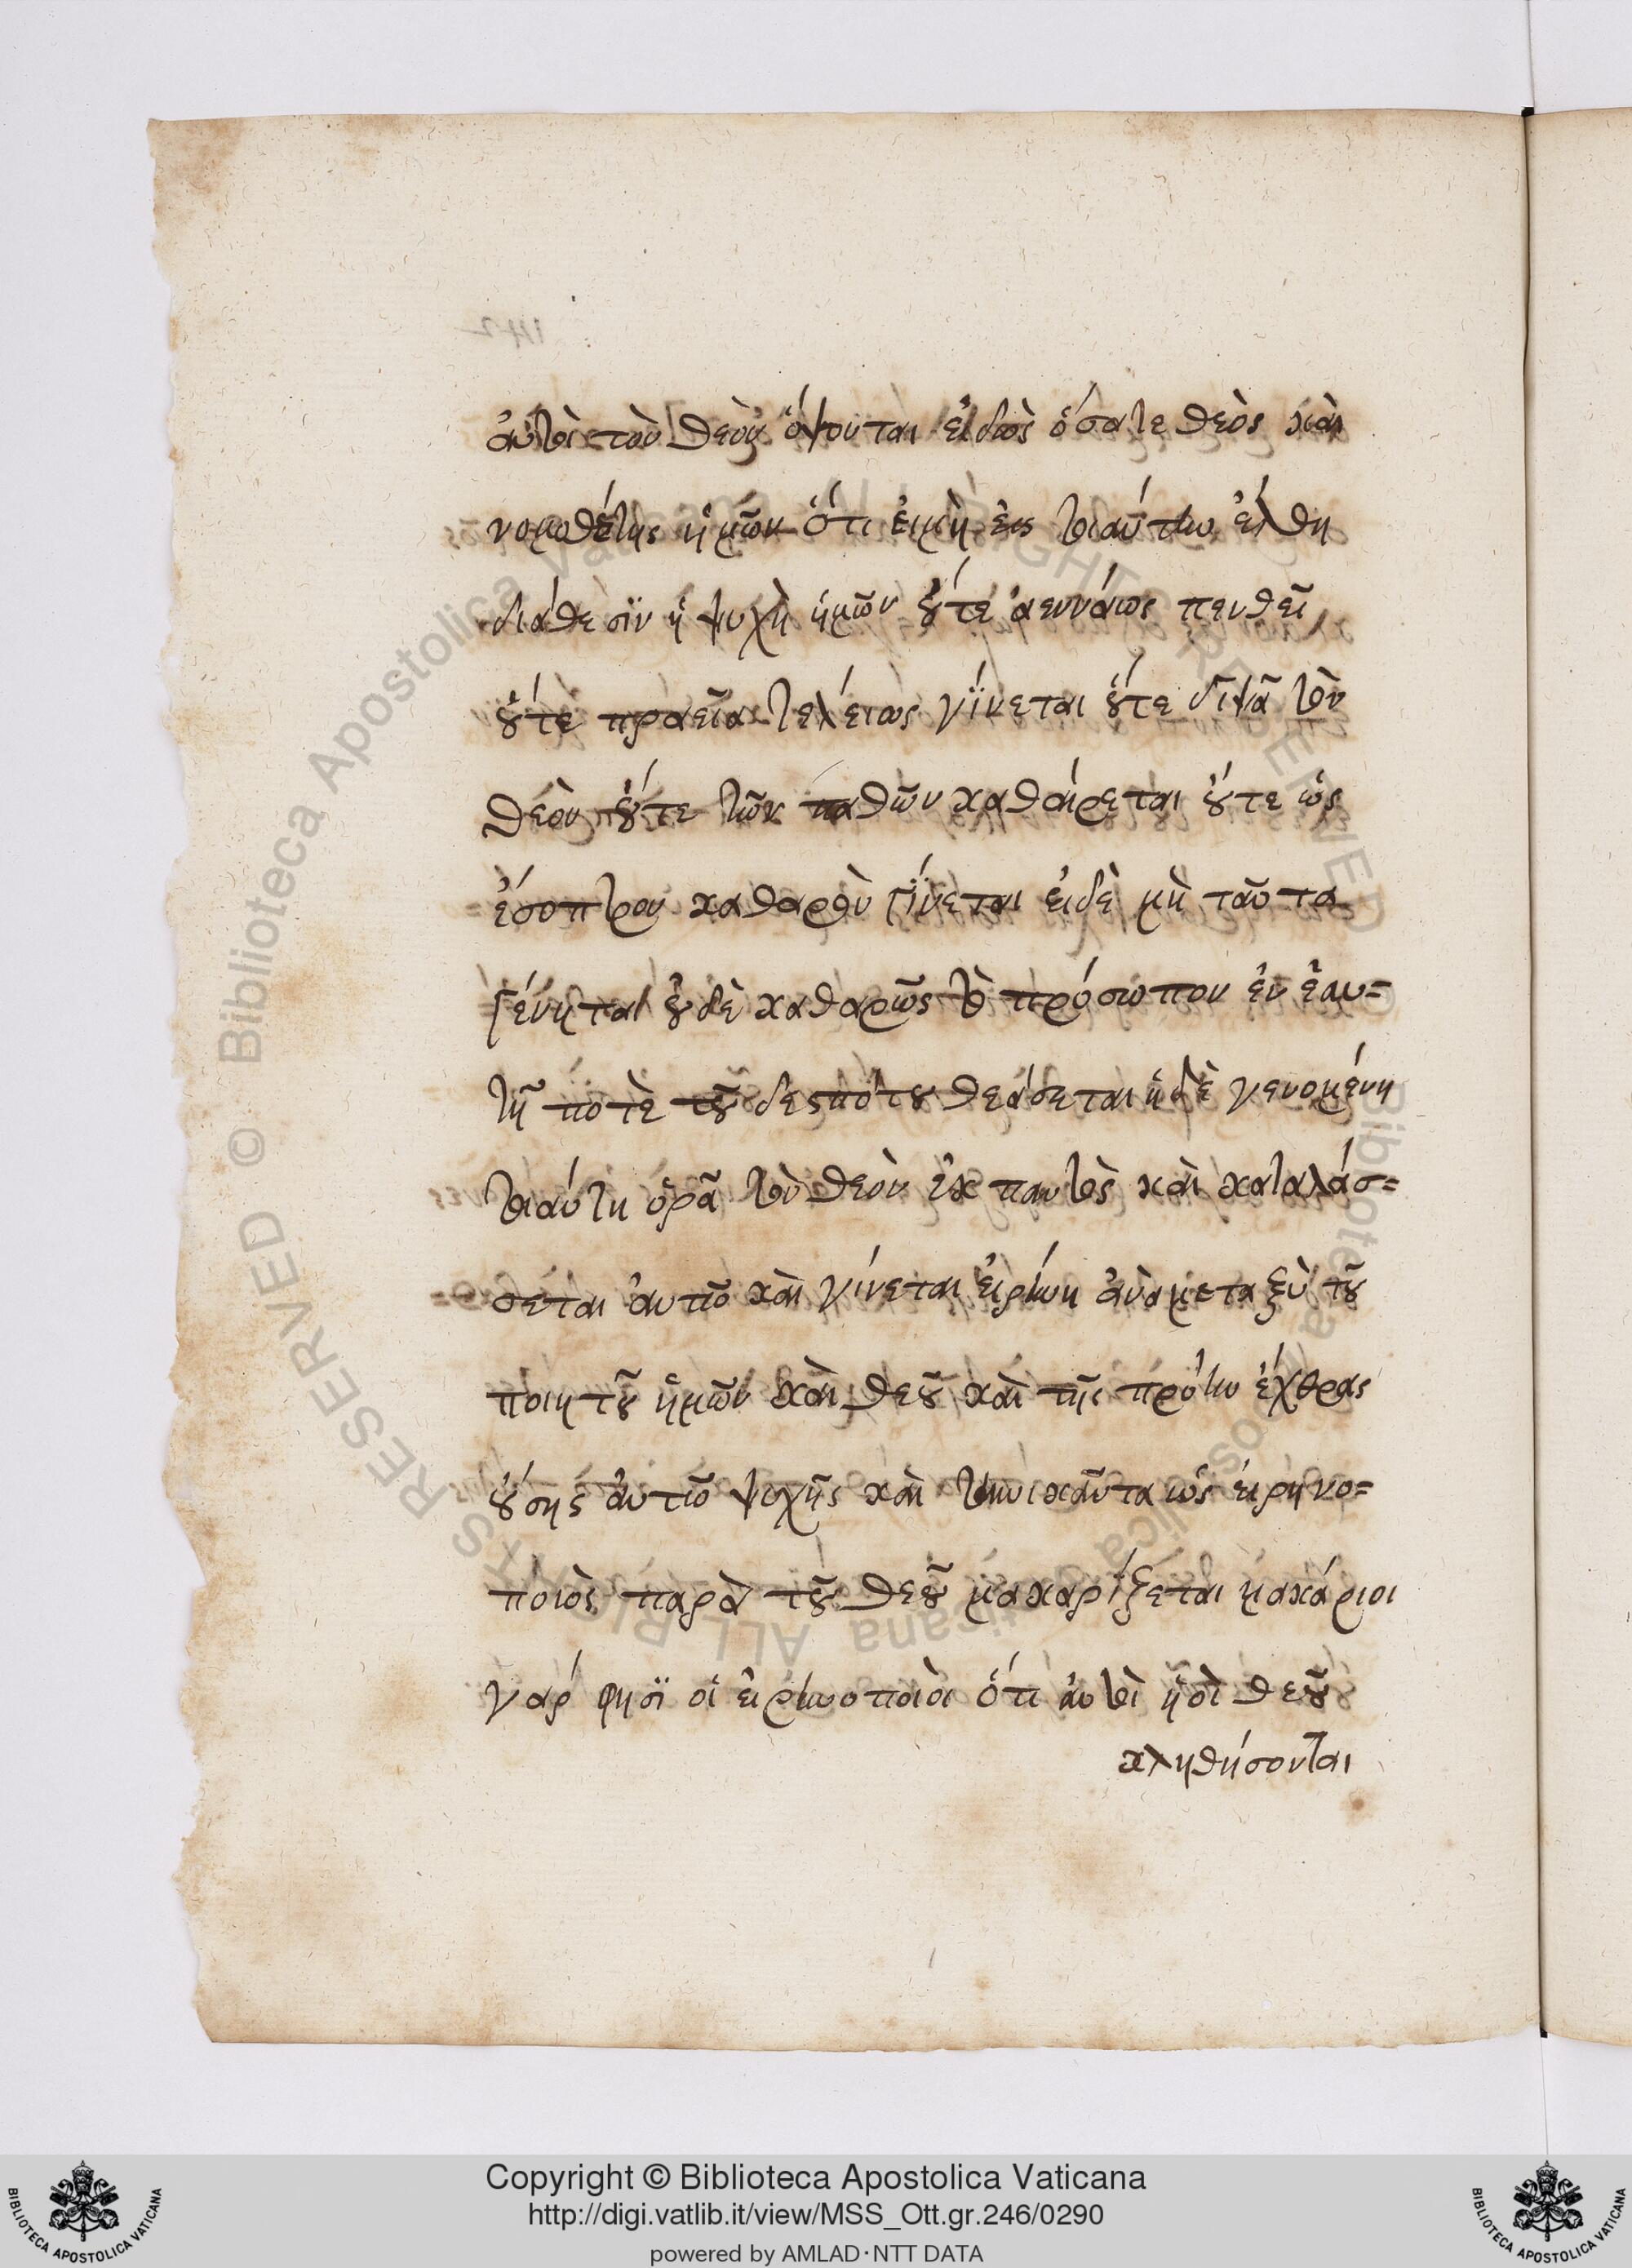 αὐτοὶ τὸν θεὸν ὄψονται εἰδὼς ὅσατε θεὸς καὶ
νομοθέτης ἡμῶν ὅτι εἰμὴ εἰς τοιαύτην ἔλθη
διάθεσϊν ἡ ψυχὴ ἡμῶν οὔτε ἀεννάως πενθεῖ
οὔτε πραεῖα τελείως γΐνεται οὔτε διψᾶ τὸν
θεὸν οὔτε τῶν παθῶν καθαίρεται οὔτε ὡς
ἔσοπτρον καθαρὸν γΐνεται εἰδὲ μὴ ταῦτα
γένηται οὐδὲ καθαρῶς τὸ πρόσωπον ἐν ἑαυ=
τῆ ποτὲ τοῦ δεσπότου θεάσεται ἡδὲ γενομένη
τοιαύτη ὁρᾶ τὸν θεὸν ἐκ παντὸς καὶ καταλάσ=
σεται αὐτῶ καὶ γίνεται εἰρήνη ἀναμεταξὺ τοῦ
ποιητοῦ ἡμῶν καὶ θεοῦ καὶ τῆς πρόην ἔχθρας
οὔσης αὐτῶ ψυχῆς καὶ τηνικαῦτα ὡς εἰρηνο=
ποιὸς παρὰ τοῦ θεοῦ μακαρίζεται μακάριοι
γάρ φησϊ οἱ εἰρηνοποιοὶ ὅτι αὐτοὶ ὑοὶ θεοῦ
κληθήσονται
Copyright © Biblioteca Apostolica Vaticana
http://digi.vatlib.it/view/MSS_Ott.gr.246/0290
powered by AMLAD·NTT DATA
BIBLIOTECA APOSTOLICA VATICANA
BIBLIOTECA APOSTOLICA VATICANA